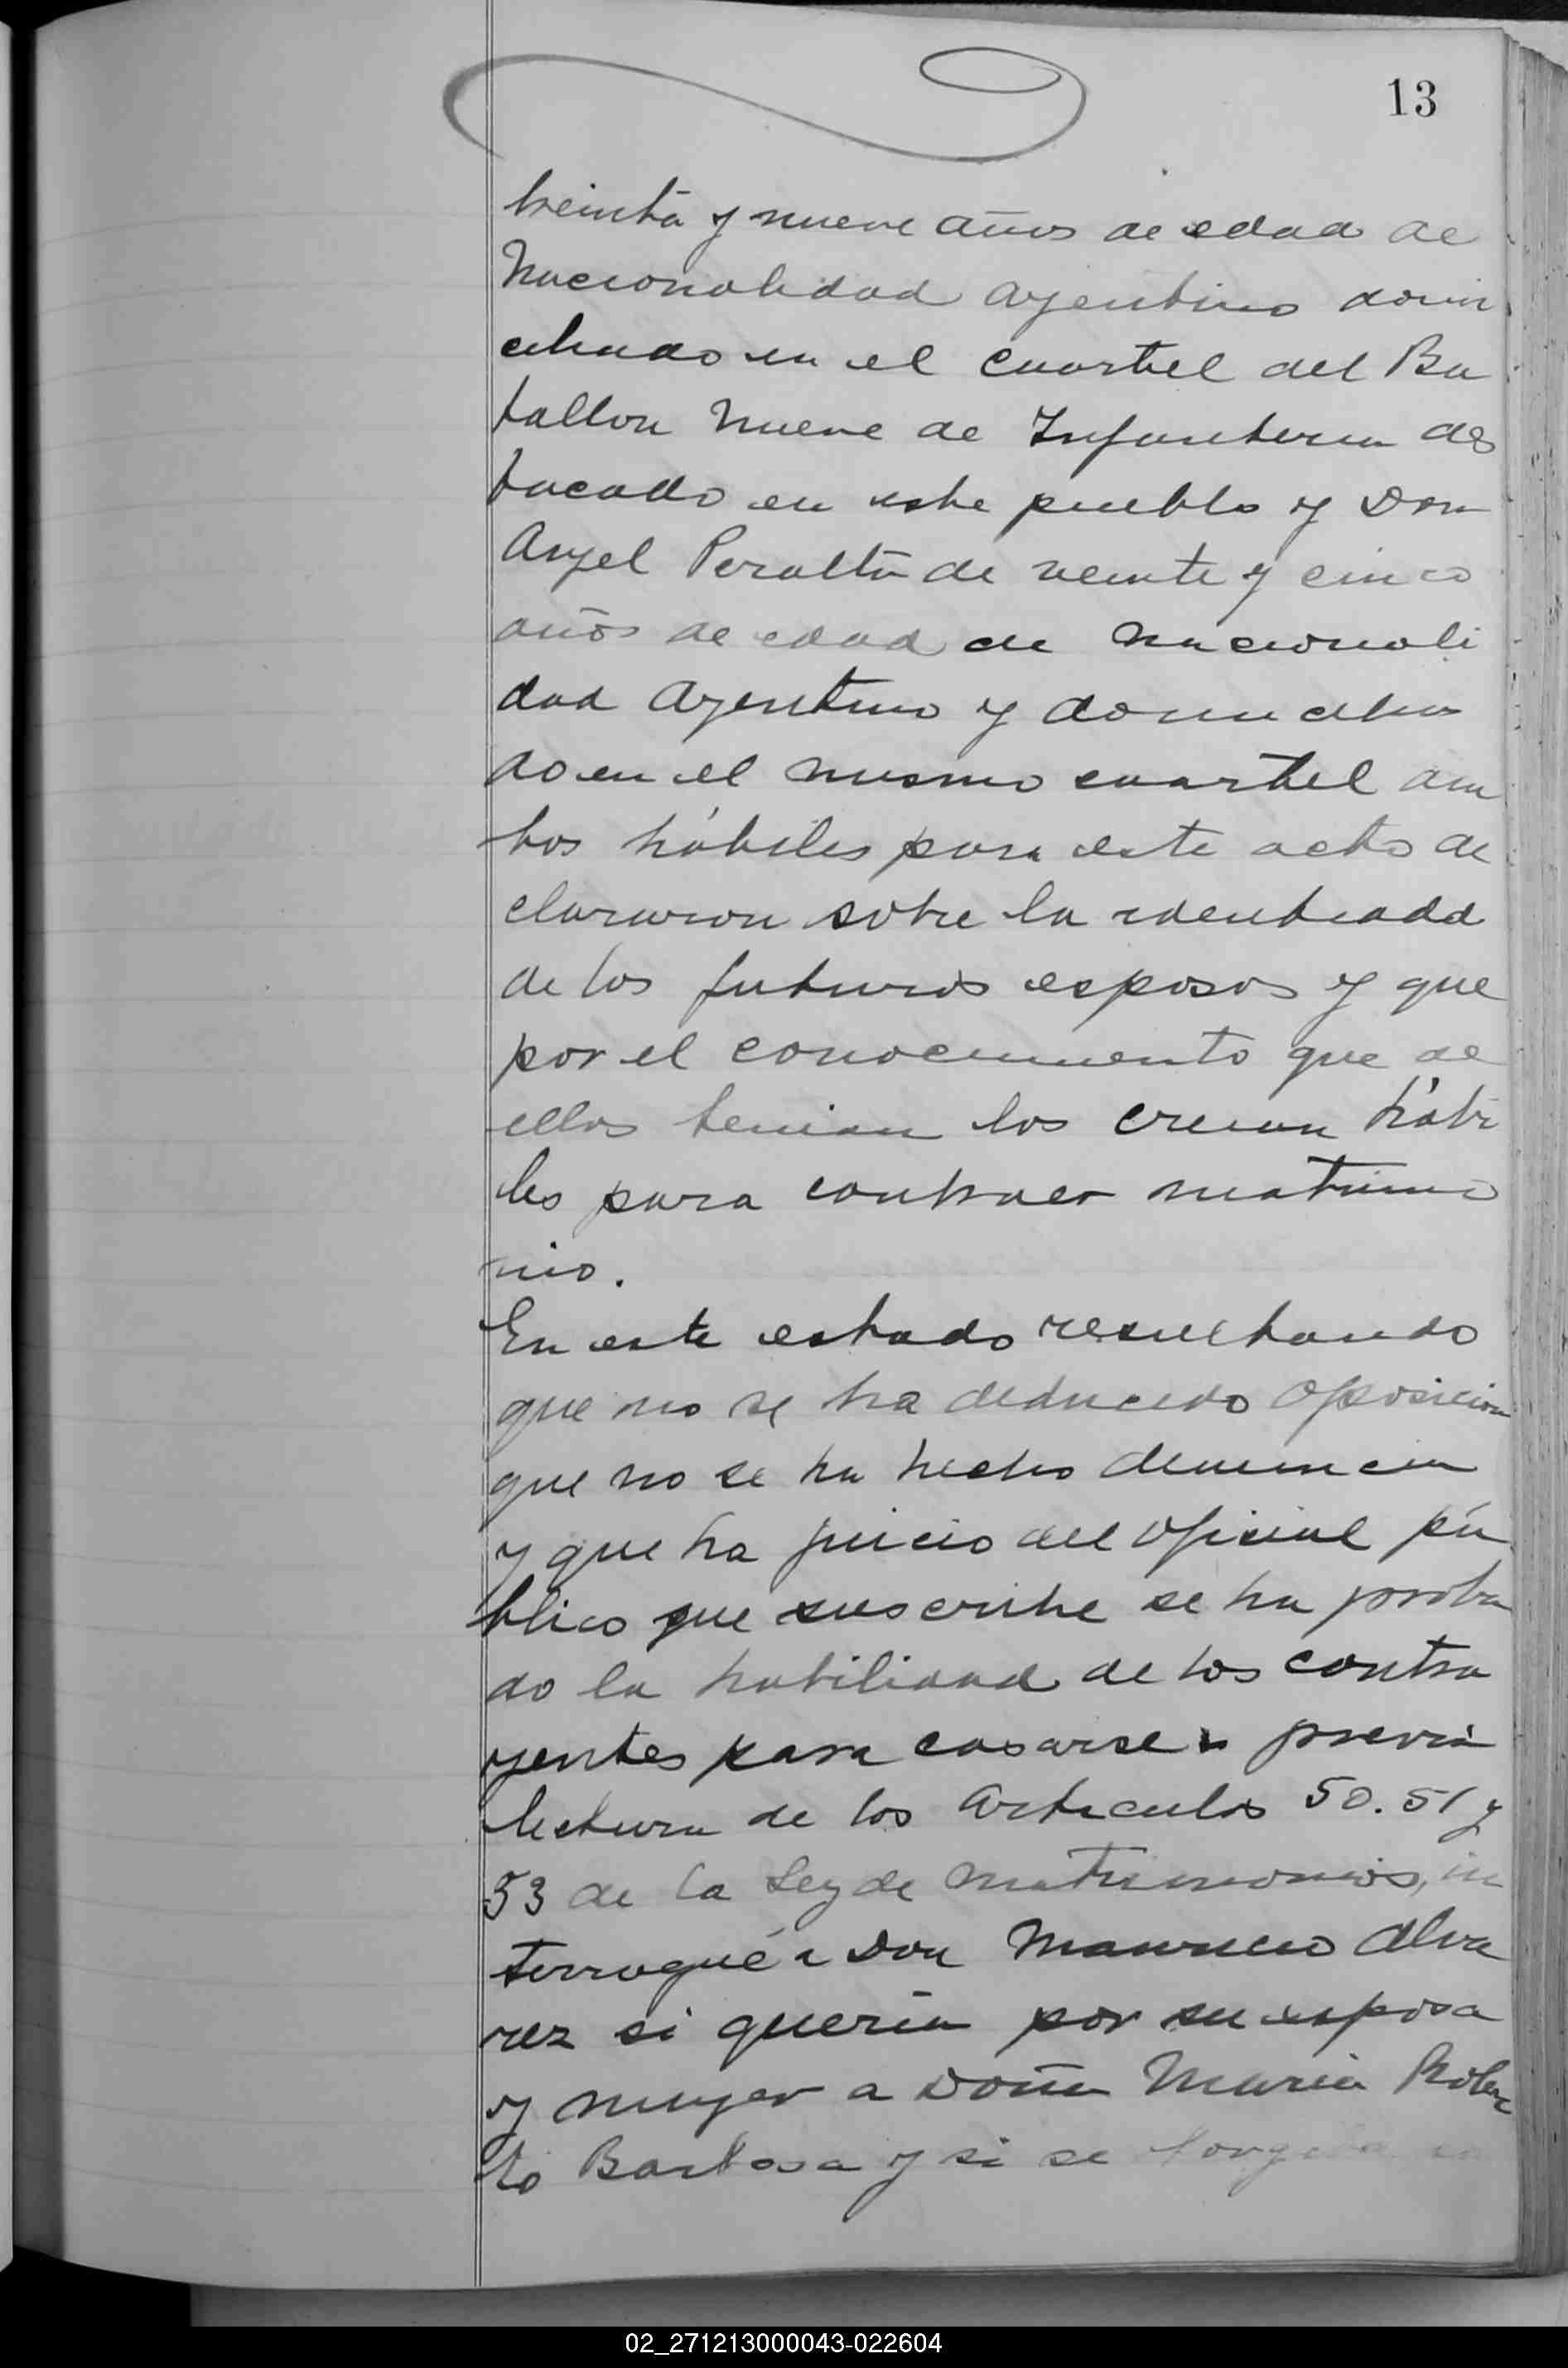 13
treinta y nueve años de edad de
Nacionalidad Argentino domi
ciliado en el Cuartel del Ba
tallon Nueve de Infanteria des
tacado en este pueblo y Don
Angel Peralta de veinte y cinco
años de edad de Nacionali
dad Argentino y domicilia
do en el mismo cuartel am
bos hábiles para este acto de
clararon sobre la identidadd
de los futuros esposos y que
por el conocimiento que de
ellos tenian los creian hábi
les para contraer matrimo
nio.
En este estado resultando
que no se ha deducido oposicion
que no se ha hecho denuncia
y que ha juicio del oficial pú
blico que suscribe se ha proba
do la habilidad de los contra
yentes para casarse previa
lectura de los Articulos 50. 51 y
53 de la Ley de Matrimonios, in
terrogué a Don Mauricio Alva
rez si queria por su esposa
y muger a Doña Maria
to Barbosa y si se
02_271213000043-022604